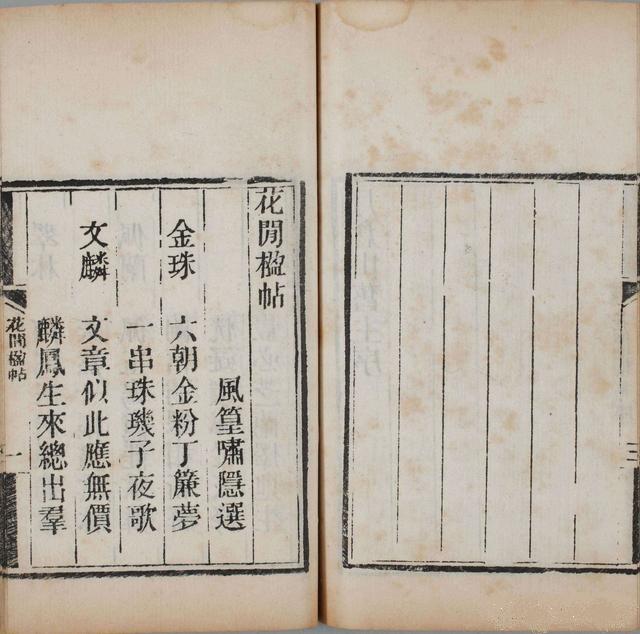 三
花間楹帖
風篁嘯隱選
金珠 六朝金粉丁簾夢
一串珠璣子夜歌
文麟 文章似此應無價
麟鳳生來總出羣
花間楹帖
一